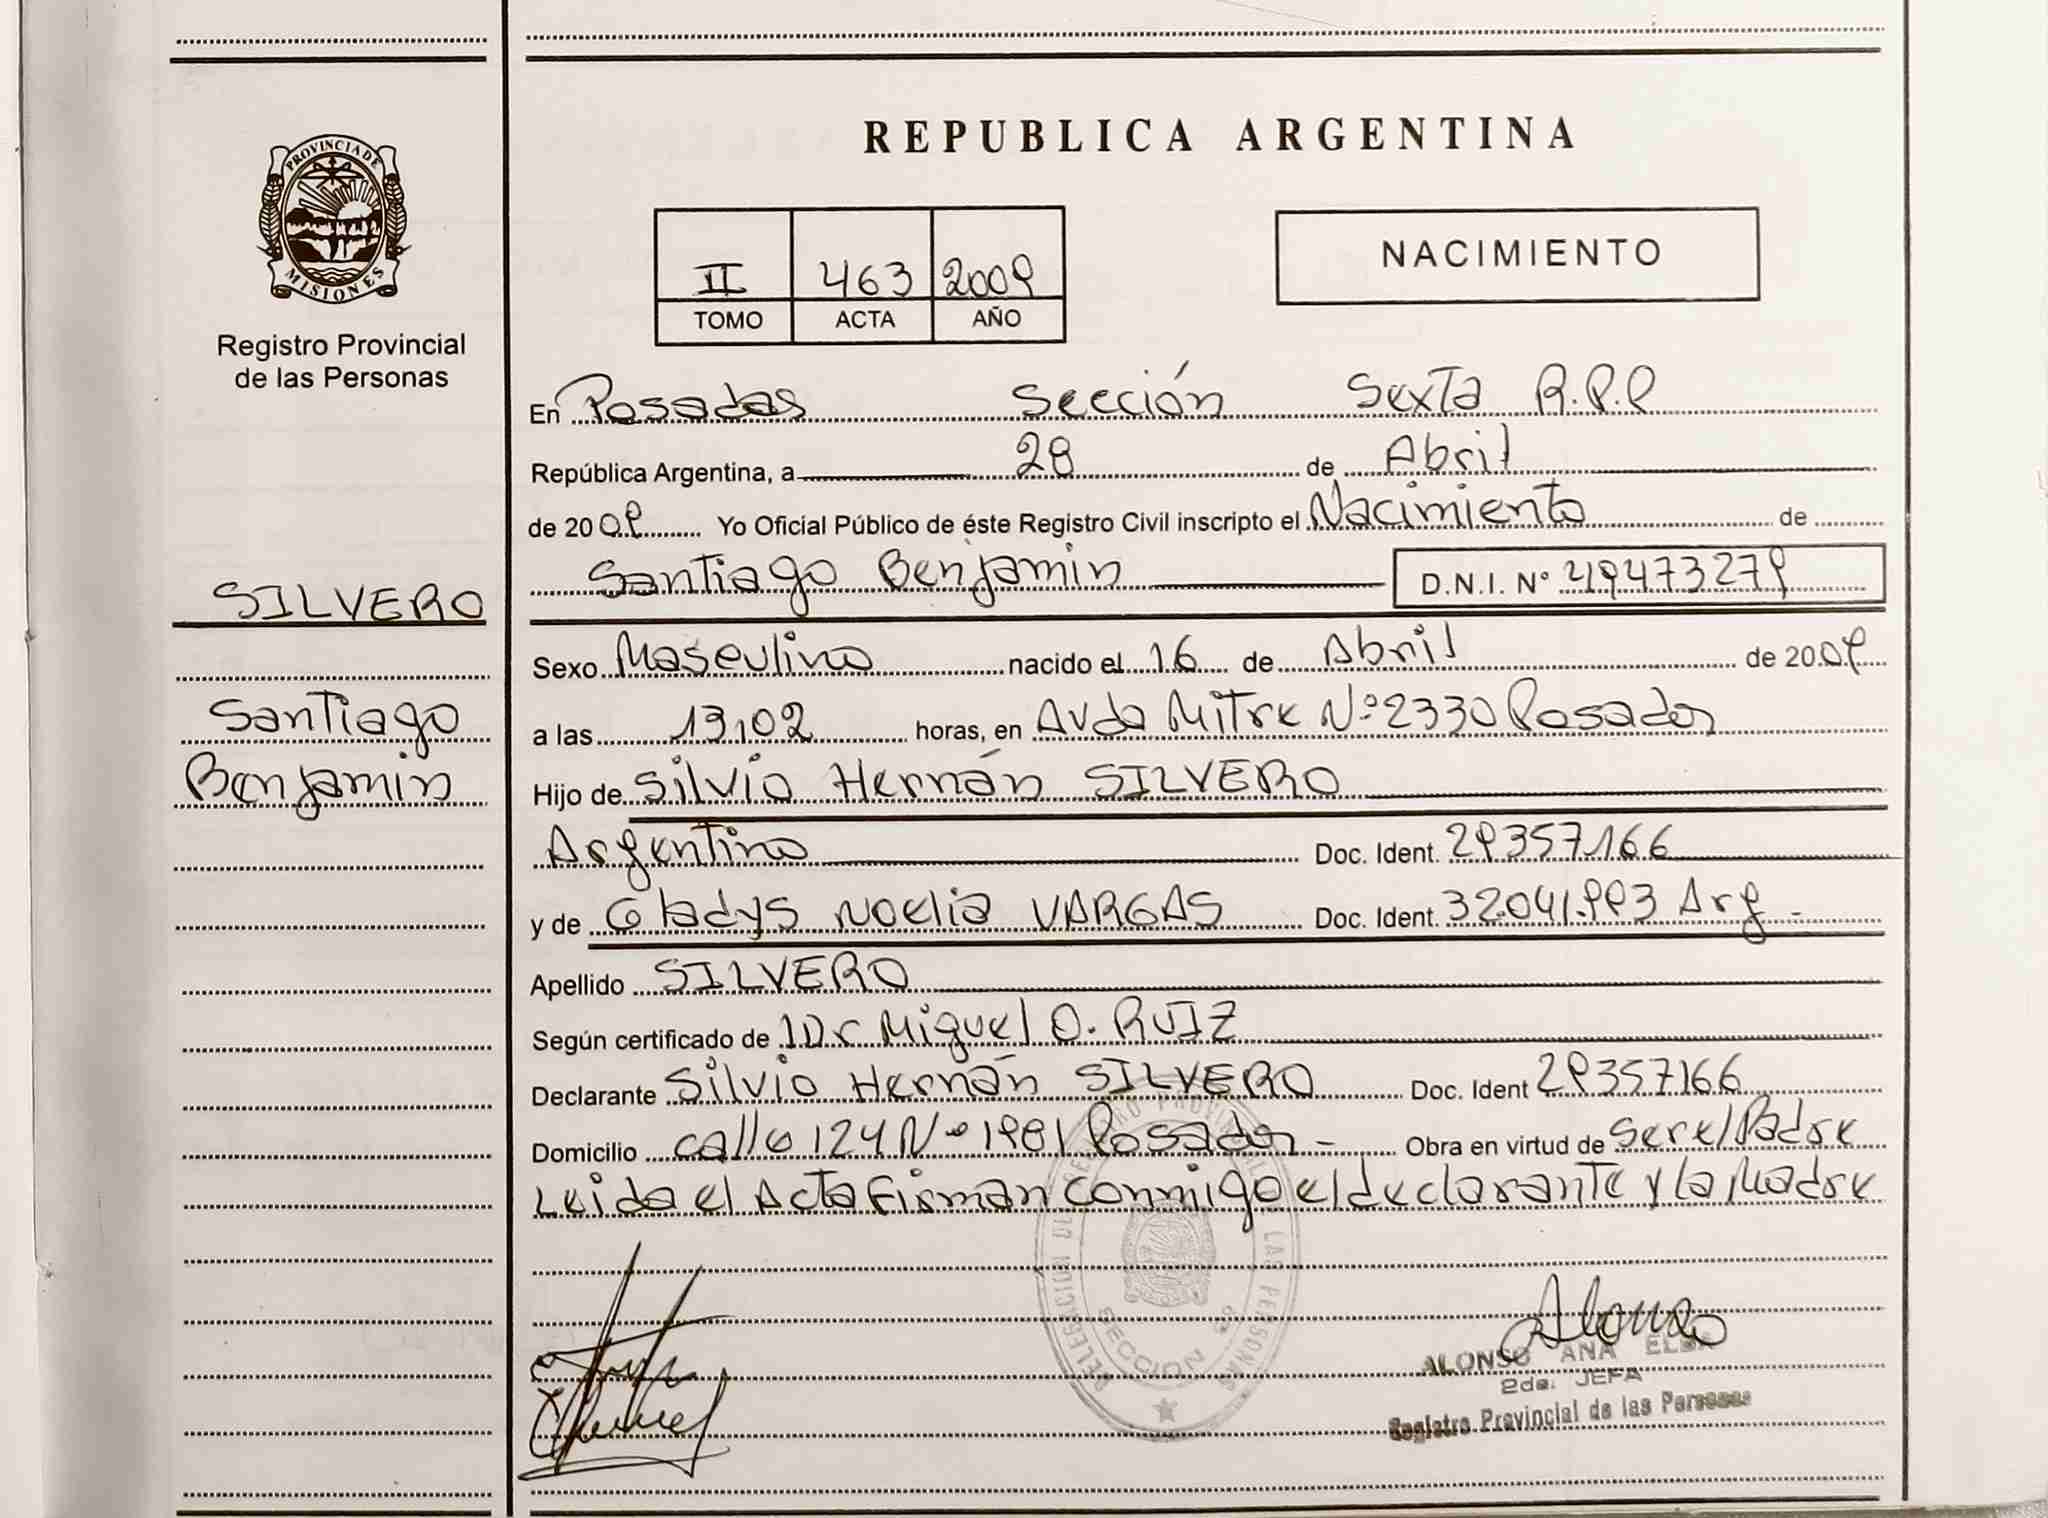 PROVINCIA DE
MISIONES
Registro Provincial
de las Personas
SILVERO
Santiago
Benjamin
REPUBLICA ARGENTINA
II 463 2009
TOMO ACTA AÑO
NACIMIENTO
En Posadas Sección Sexta R.P.P
República Argentina, a 28 de Abril
de 2009 Yo Oficial Público de éste Registro Civil inscripto el Nacimiento de
Santiago Benjamin D.N.I. Nº 49473279
Sexo Masculino nacido el 16 de Abril de 2009
a las 13,02 horas, en Avda Mitre Nº 2330 Posadas
Hijo de Silvio Hernán SILVERO
Argentino Doc. Ident. 29357166
y de Gladys Noelia VARGAS Doc. Ident. 32.041.993 Arg -
Apellido SILVERO
Según certificado de Dr Miguel O. RUIZ
Declarante Silvio Hernán SILVERO Doc. Ident 29357166
Domicilio calle 124 Nº 1981 Posadas - Obra en virtud de Ser el Padre
Leida el Acta Firman conmigo el declarante y la Madre
DELEGACION DEL REGISTRO PROVINCIAL DE LAS PERSONAS
SECCION 6ª
Alonso
ALONSO ANA ELBA
2da. JEFA
Registro Provincial de las Personas